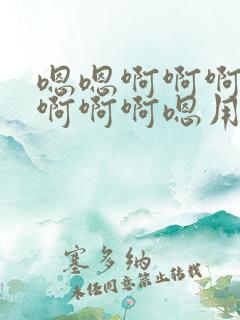 嗯嗯啊啊啊
啊啊啊嗯用
塞多纳
未经同意禁止转载